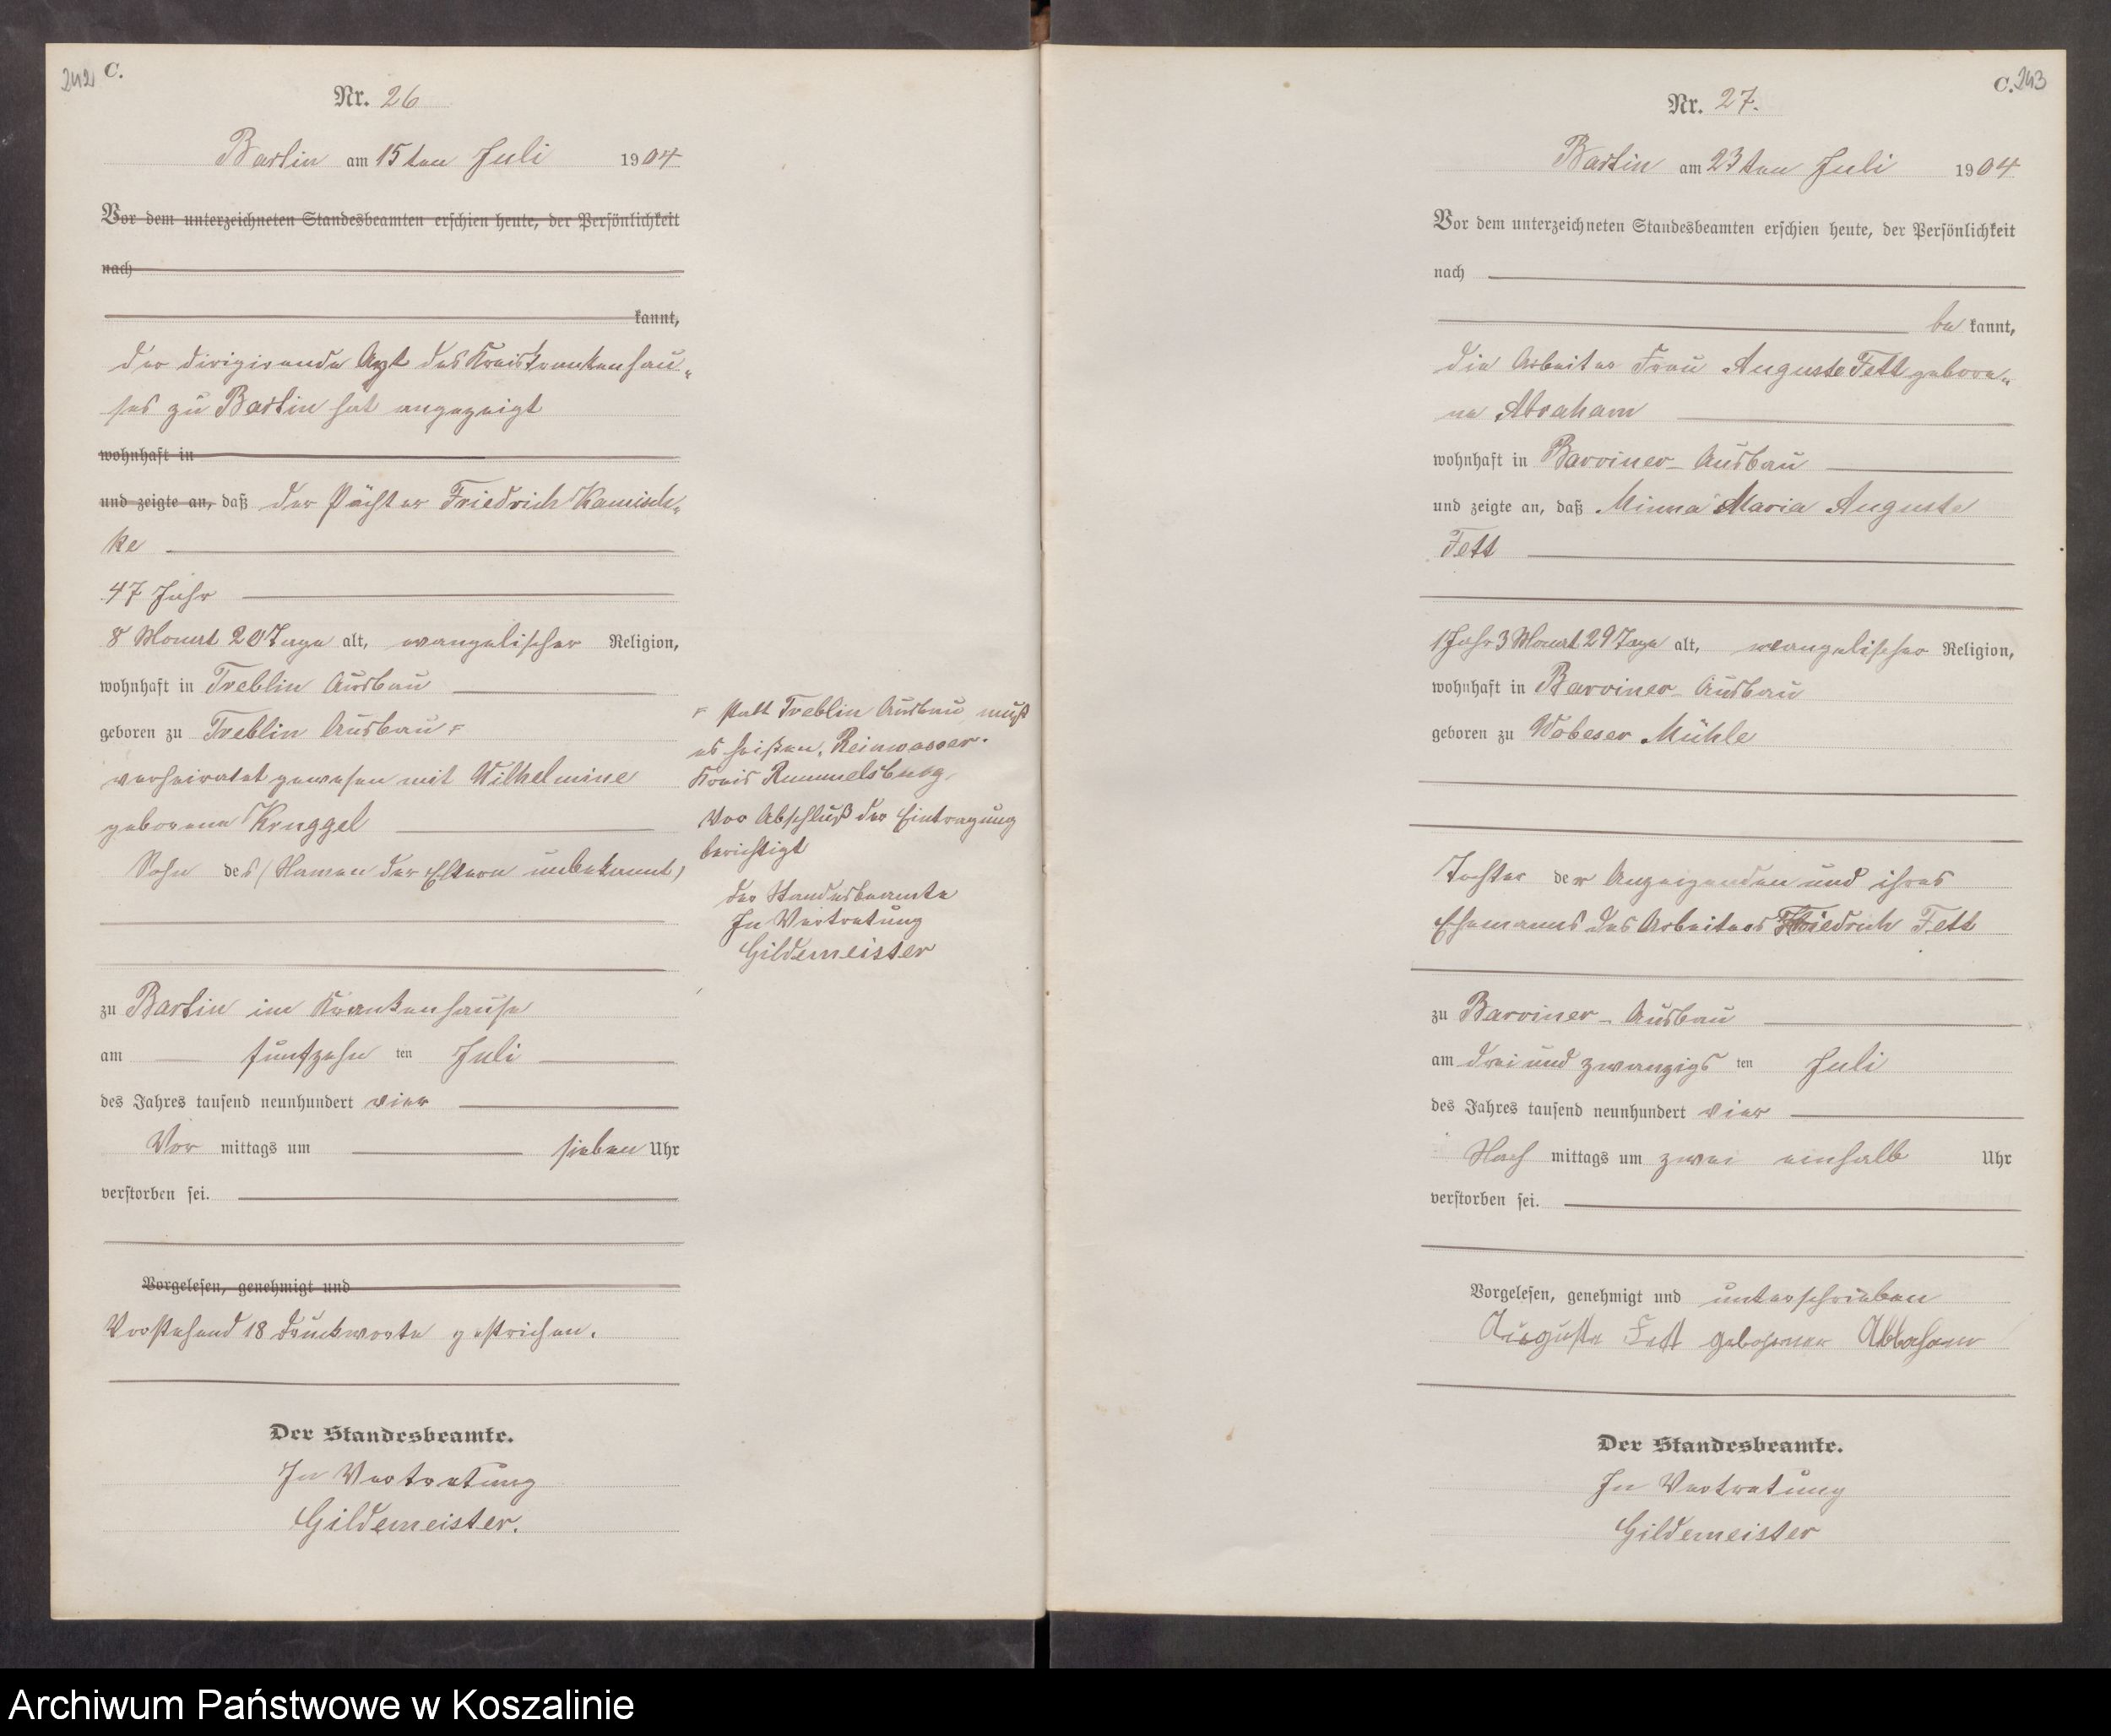 242 C.
Nr. 26
Bartin am 15ten Juli 1904
Vor dem unterzeichneten Standesbeamten erschien heute, der Persönlichkeit
nach
kannt,
der dirigirende Arzt des Kreiskrankenhau-
ses zu Bartin hat angezeigt
wohnhaft in
und zeigte an, daß der Pächter Friedrich Kamisch-
ke
47 Jahr
8 Monat 20 Tage alt, evangelischer Religion,
wohnhaft in Treblin Ausbau
geboren zu Treblin Ausbau
verheiratet gewesen mit Wilhelmine
geborene Kruggel
Sohn des (Namen der Eltern unbekannt)
zu Bartin im Krankenhause
am fünfzehn ten Juli
des Jahres tausend neunhundert vier
Vor mittags um sieben Uhr
verstorben sei.
Vorgelesen, genehmigt und
Vorstehend 18 Druckworte gestrichen.
Der Standesbeamte.
In Vertretung
Gildemeister.
statt Treblin Ausbau muß
es heißen, Reinwasser.
Kreis Rummelsburg,
Vor Abschluß der Eintragung
berichtigt
Der Standesbeamte
In Vertretung
Gildemeister
C. 243
Nr. 27.
Bartin am 23ten Juli 1904
Vor dem unterzeichneten Standesbeamten erschien heute, der Persönlichkeit
nach
be kannt,
die Arbeiter Frau Auguste Fett gebore-
ne Abraham
wohnhaft in Barviner-Ausbau
und zeigte an, daß Minna Maria Auguste
Fett
1 Jahr 3 Monat 29 Tage alt, evangelischer Religion,
wohnhaft in Barviner-Ausbau
geboren zu Wobeser Mühle
Tochter der Anzeigenden und ihres
Ehemanns des Arbeiters Friedrich Fett
zu Barviner-Ausbau
am drei und zwanzigs ten Juli
des Jahres tausend neunhundert vier
Nach mittags um zwei einhalb Uhr
verstorben sei.
Vorgelesen, genehmigt und unterschrieben
Auguste Fett Abraham
Der Standesbeamte.
In Vertretung
Gildemeister
Archiwum Państwowe w Koszalinie